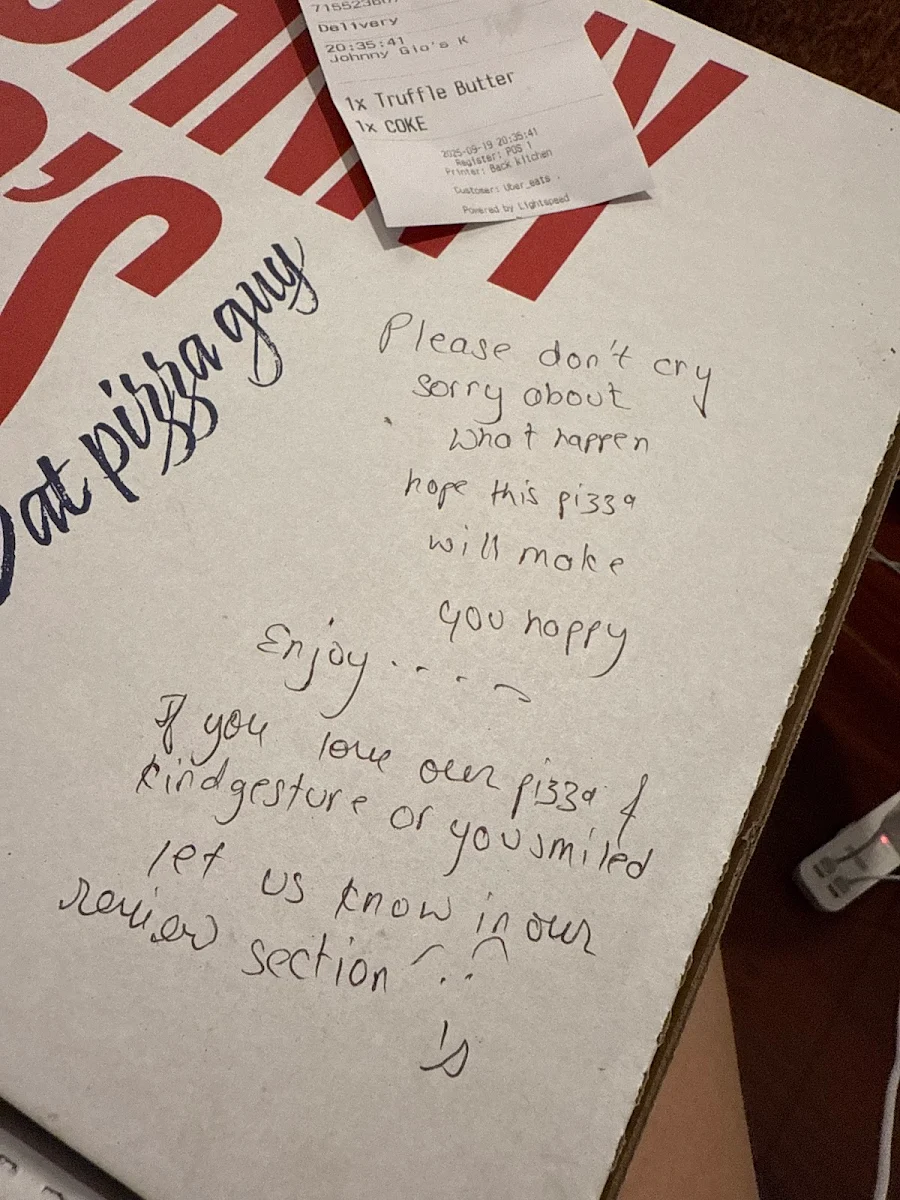 Delivery
20:35:41
Johnny Gio's K
1x Truffle Butter
1x COKE
2025-09-19 20:35:41
Register: POS 1
Printer: Back kitchen
Customer: Uber_eats
Powered by Lightspeed
eat pizza guy
Please don't cry
sorry about
What happen
hope this pizza
will make
you happy
Enjoy....
If you love our pizza &
kind gesture or you smiled
let us know in our
review section